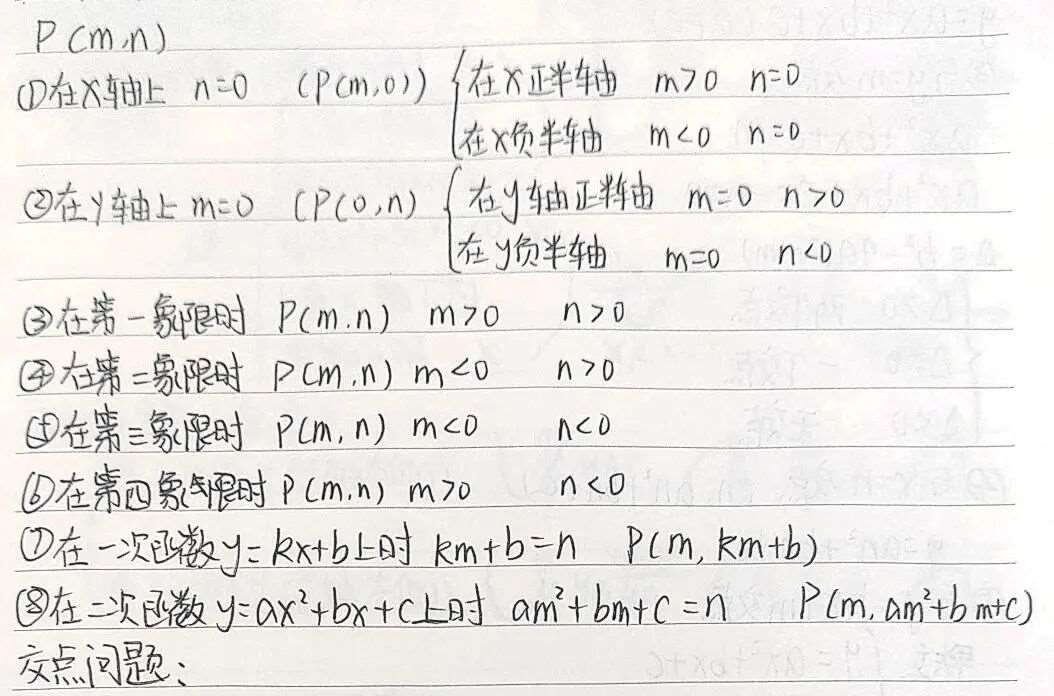 P(m,n)
①在X轴上 n=0 (P(m,0)) { 在X正半轴 m>0 n=0
在X负半轴 m<0 n=0
②在y轴上 m=0 (P(0,n) { 在y轴正半轴 m=0 n>0
在y负半轴 m=0 n<0
③在第一象限时 P(m.n) m>0 n>0
④在第二象限时 P(m,n) m<0 n>0
⑤在第三象限时 P(m,n) m<0 n<0
⑥在第四象限时 P(m,n) m>0 n<0
⑦在一次函数y=kx+b上时 km+b=n P(m,km+b)
⑧在二次函数y=ax²+bx+c上时 am²+bm+c=n P(m,am²+bm+c)
交点问题: